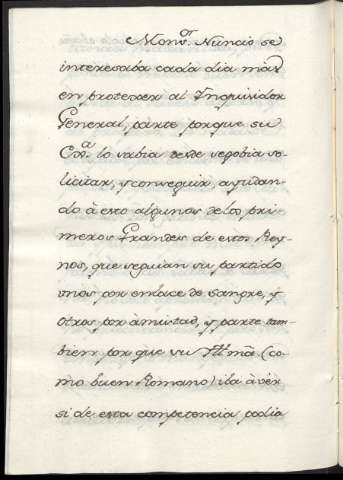 Monr. Nuncio se
interesaba cada dia mas
en protexer al Inquisidor
General, parte porque su
Exa. lo sabia desde se
licitar, y conseguir, ayudan
do à esto algunos delos pri
meros Grandes de estos Rey
nos, que seguian su partido
unos, por enlace de sangre, y
otros por àmistad, y parte tam
bien, por que su Illma (co
mo buen Romano) iba à vèr
si de esta competencia podia